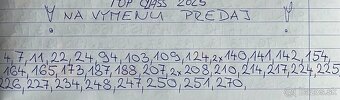 TOP CLASS 2025
NA VÝMENU PREDAJ
4, 7, 11, 22, 24, 94, 103, 109, 124, 2x 140, 141, 142, 154,
164, 165, 173, 187, 188, 207, 2x 208, 210, 214, 217, 224, 225,
226, 227, 234, 248, 247, 250, 251, 270,